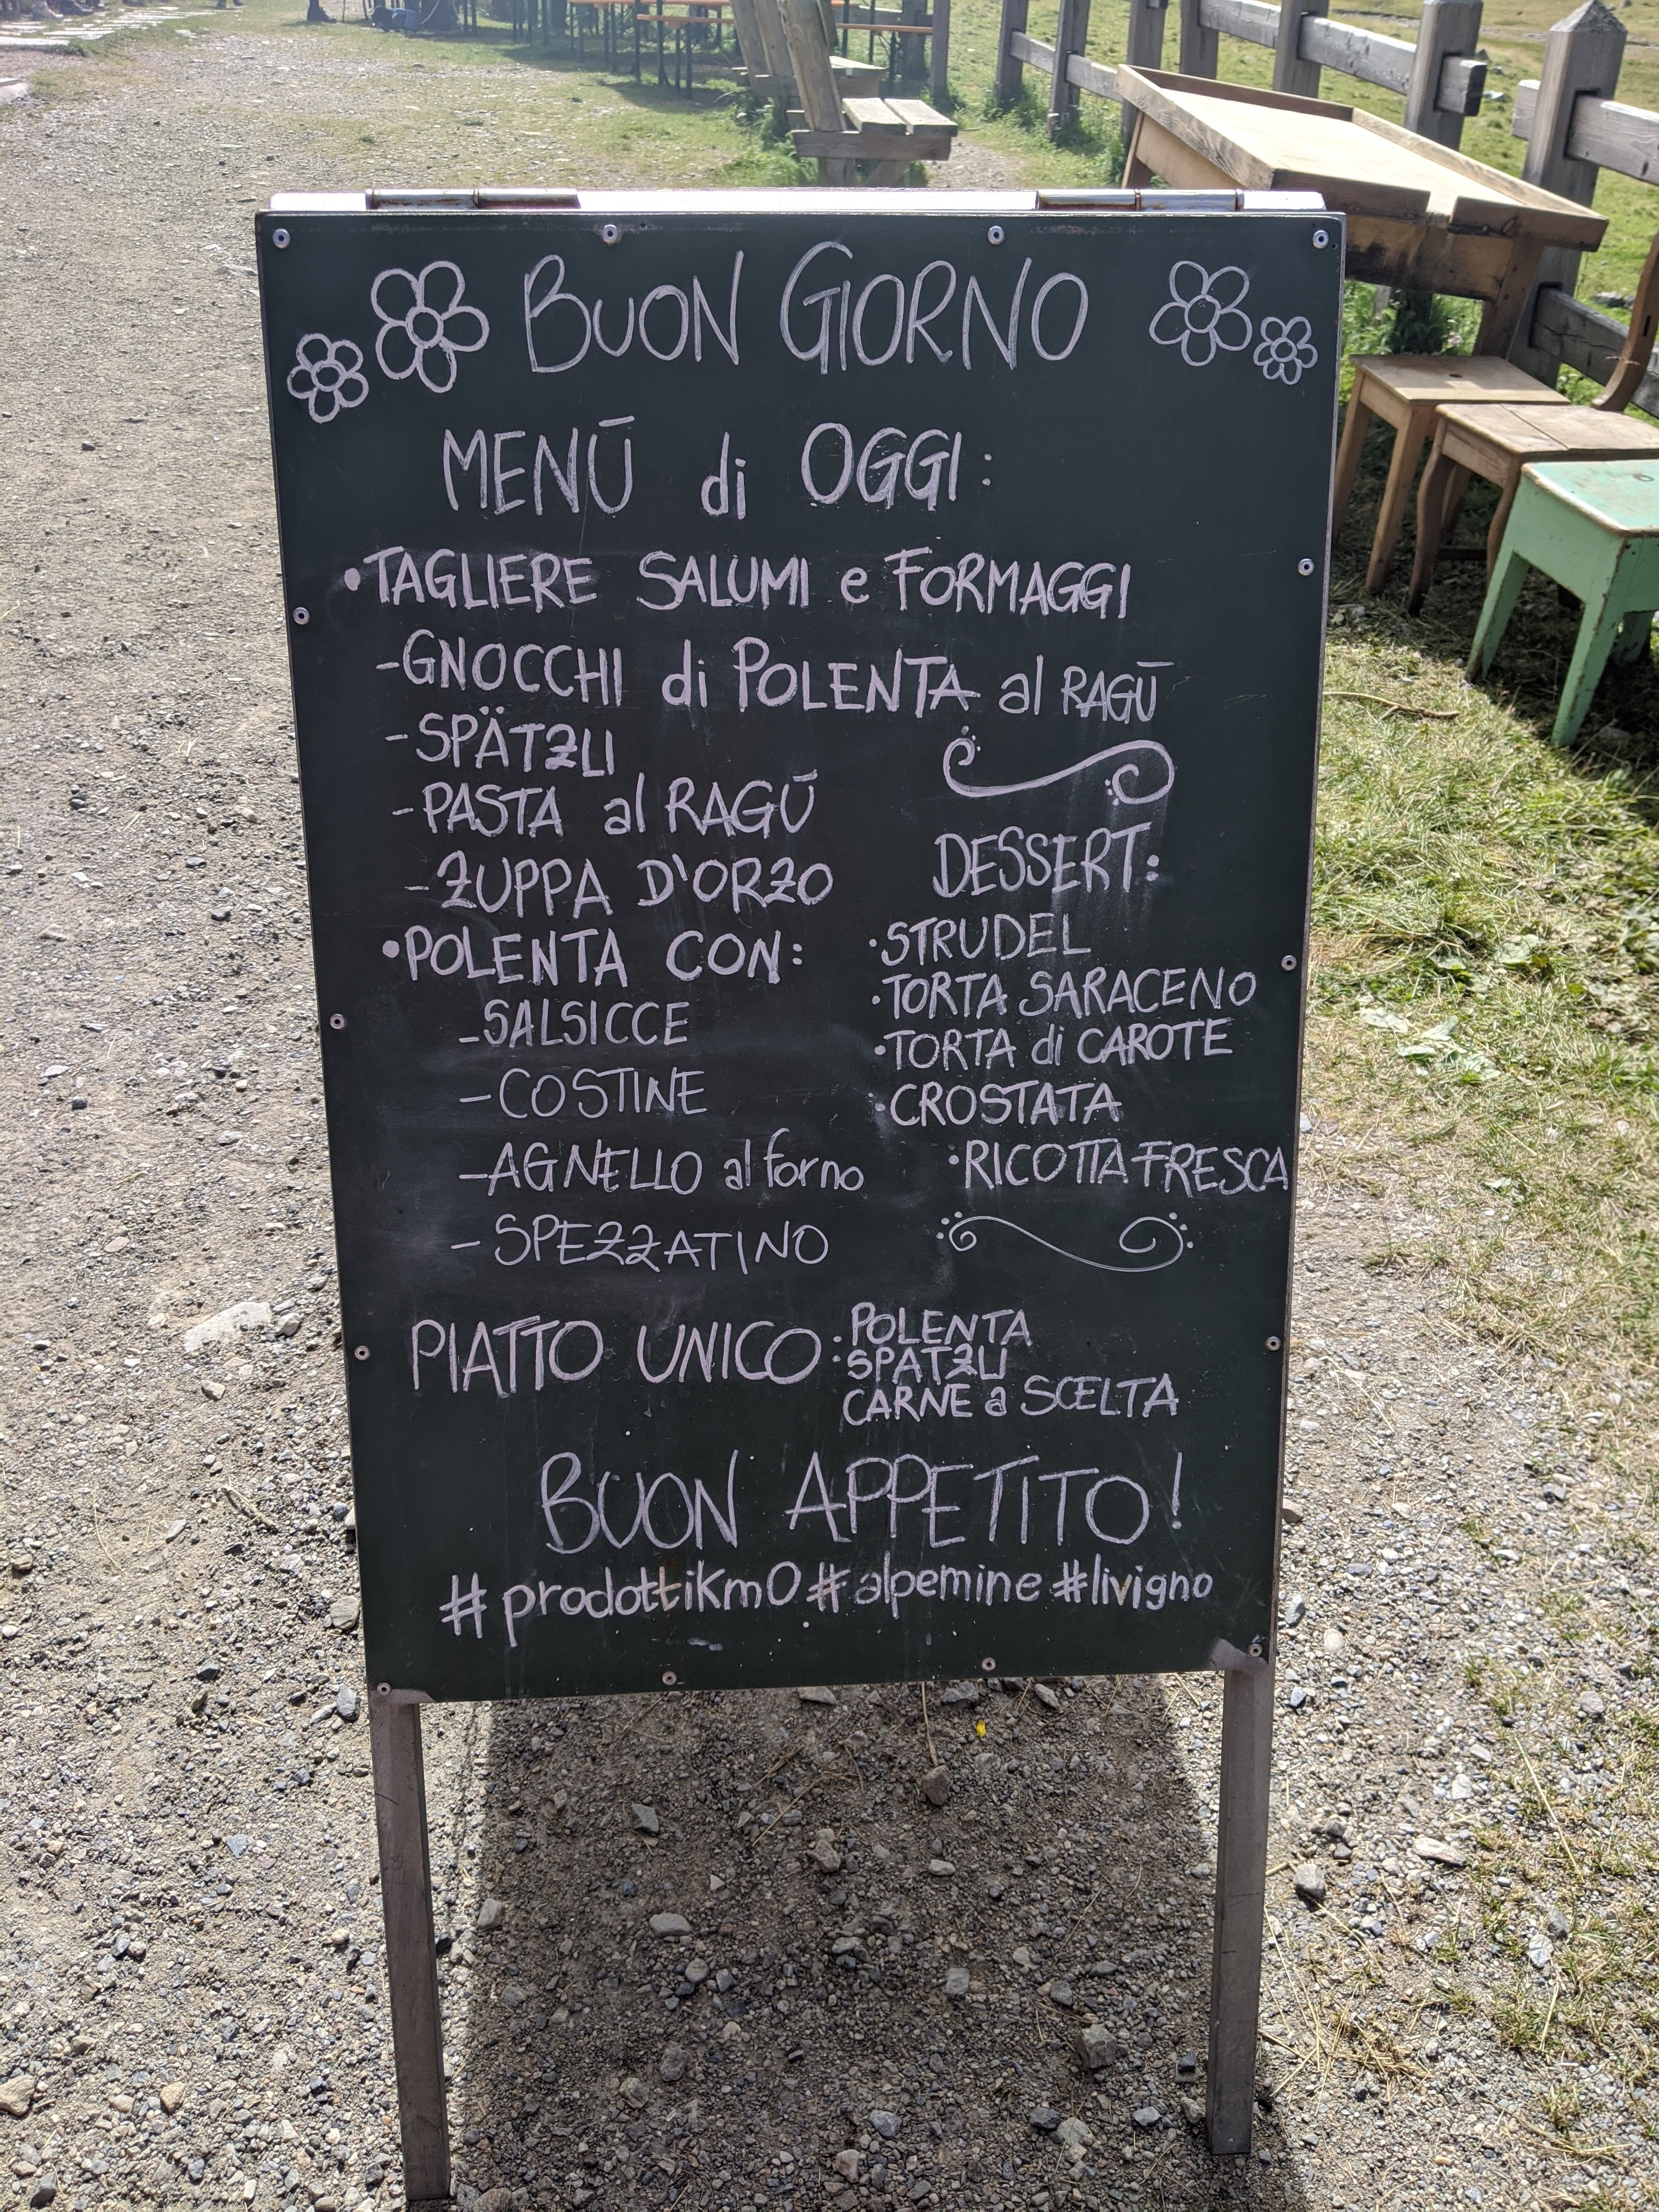 BUON GIORNO
MENŪ di OGGI:
•TAGLIERE SALUMI e FORMAGGI
-GNOCCHI di POLENTA al RAGŪ
-SPÄTZLI
-PASTA al RAGŪ
-ZUPPA D'ORZO
•POLENTA CON:
-SALSICCE
-COSTINE
-AGNELLO al forno
-SPEZZATINO
DESSERT:
•STRUDEL
•TORTA SARACENO
•TORTA di CAROTE
•CROSTATA
•RICOTTA FRESCA
PIATTO UNICO:
POLENTA
SPATZLI
CARNE a SCELTA
BUON APPETITO!
#prodottiKm0 #alpemine #livigno